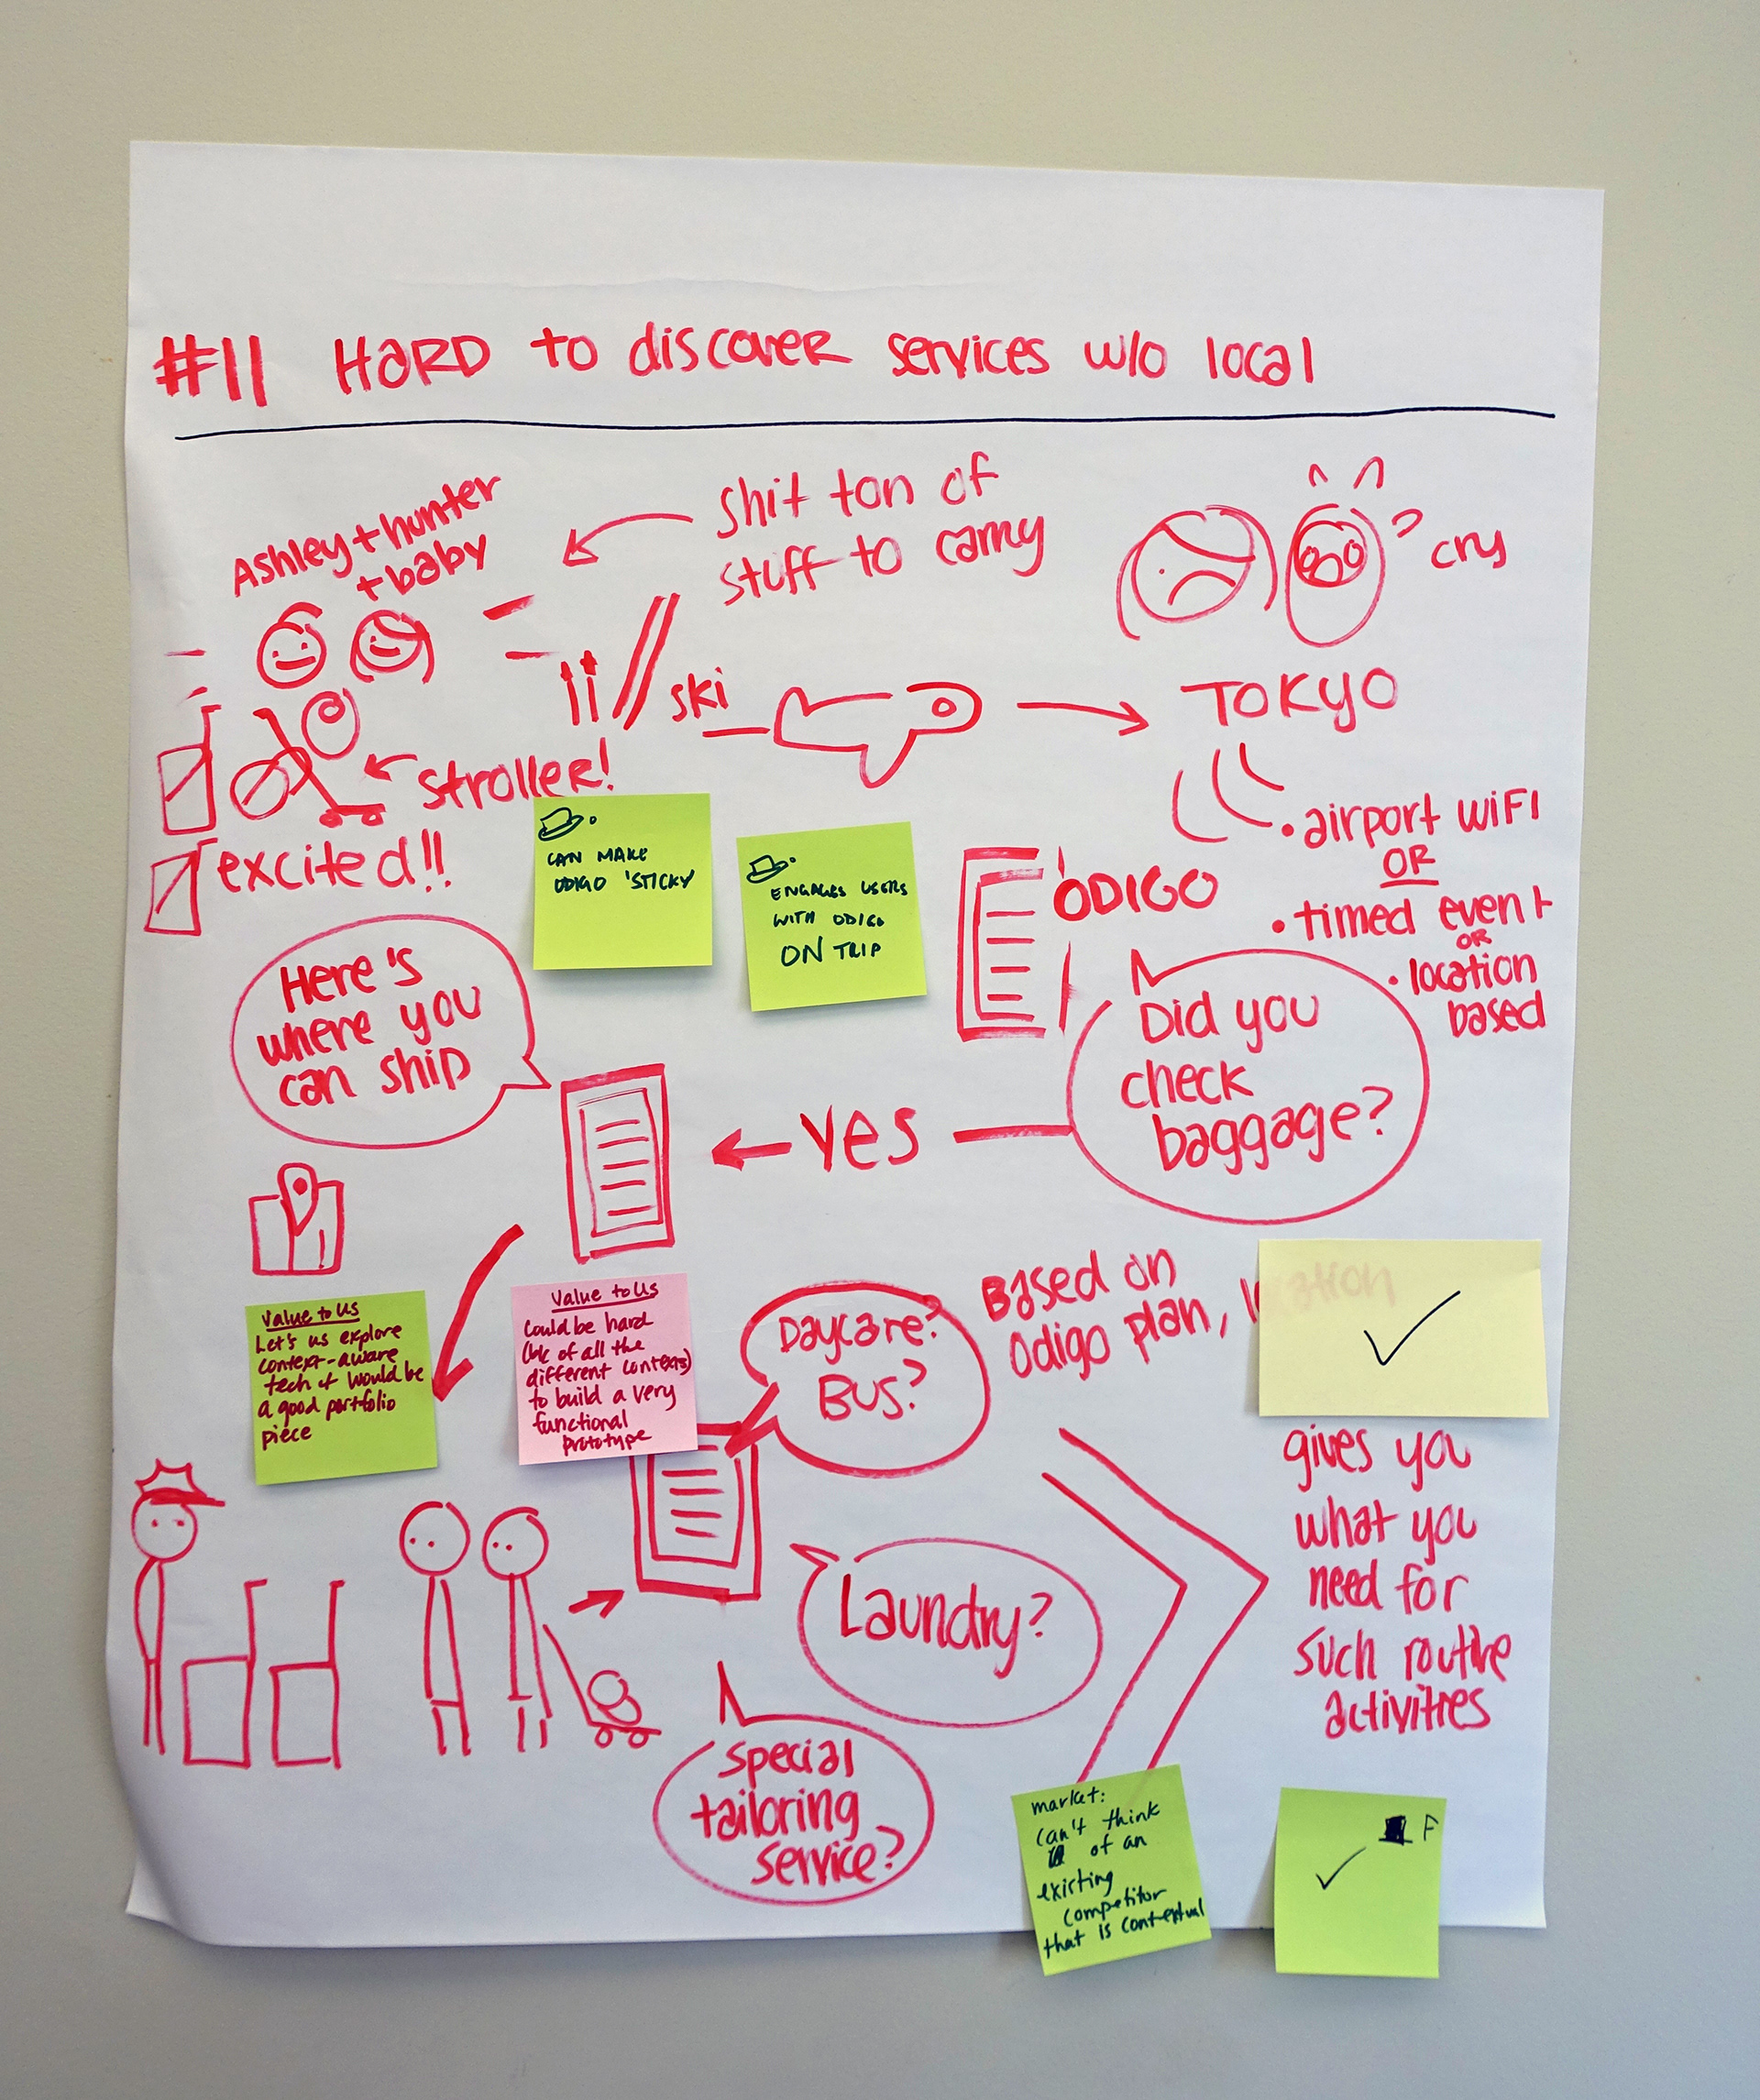 #11 HARD to discover services w/o local
Ashley + hunter
+ baby
shit ton of
stuff to carry
cry
ski
TOKYO
stroller!
excited!!
CAN MAKE
ODIGO 'STICKY'
ENGAGES USERS
WITH ODIGO
ON TRIP
ODIGO
• airport WiFi
OR
• timed event
OR
• location
based
Here's
where you
can ship
yes
Did you
check
baggage?
Value to us
Let's us explore
context-aware
tech & would be
a good portfolio
piece
Value to us
Could be hard
(b/c of all the
different contexts)
to build a very
functional
prototype
Daycare?
Bus?
Based on
odigo plan, location
gives you
what you
need for
such routine
activities
Laundry?
special
tailoring
service?
market:
can't think
of an
existing
competitor
that is contextual
F